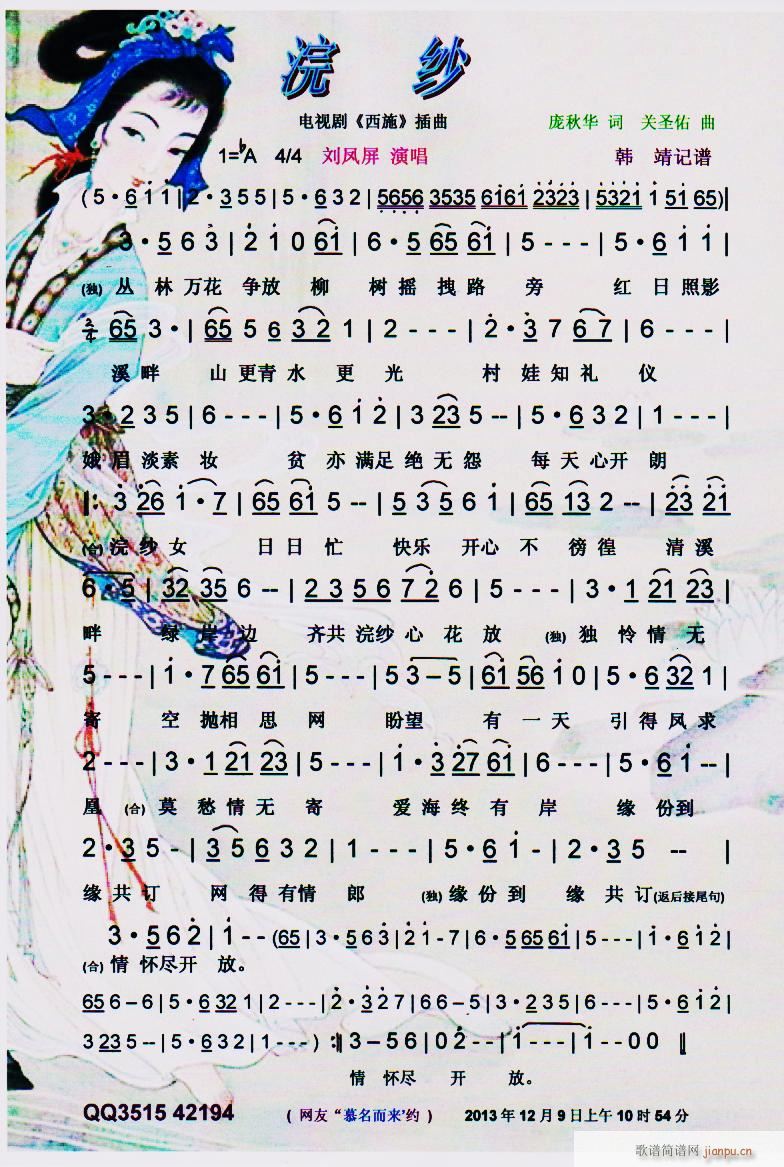 浣 纱
电视剧《西施》插曲 庞秋华 词 关圣佑 曲
1=♭A 4/4 刘凤屏 演唱 韩 靖记谱
(5·6 1 1|2·3 5 5|5·6 3 2|5656 3535 6161 2323|5321 1 51 65)|
3·5 6 3|2 1 0 61|6·5 65 61|5 - - -|5·6 1 1|
(独) 丛 林 万花 争放 柳 树 摇 拽 路 旁 红 日 照影
2/4 65 3·|65 5 6 32 1|2 - - -|2·3 7 67|6 - - -|
溪畔 山 更青 水 更 光 村 娃 知 礼 仪
3·2 3 5|6 - - -|5·6 1 2|3 23 5 - -|5·6 3 2|1 - - -|
娥 眉 淡素 妆 贫 亦 满足 绝 无 怨 每 天 心开 朗
‖: 3 26 1·7|65 61 5 - -|5 3 5 6 1|65 13 2 - -|23 21
(合) 浣 纱 女 日 日 忙 快乐 开心 不 徬 徨 清 溪
6·5|32 35 6 - -|2 3 5 6 7 2 6|5 - - -|3·1 21 23|
畔 绿 岸 边 齐共 浣纱 心 花 放 (独) 独 怜 情 无
5 - - -|1·7 65 61|5 - - -|5 3 - 5|61 56 1 0|5·6 32 1|
寄 空 抛相 思 网 盼望 有 一 天 引 得 凤 求
2 - - -|3·1 21 23|5 - - -|1·3 27 61|6 - - -|5·6 1 - -|
凰 (合) 莫 愁 情 无 寄 爱 海 终 有 岸 缘 份到
2·3 5 -|3 5 6 3 2|1 - - -|5·6 1 -|2·3 5 - -|
缘 共 订 网 得 有情 郎 (独) 缘 份 到 缘 共 订(返后接尾句)
3·5 6 2|1 - - (65|3·5 6 3|2 1 - 7|6·5 65 61|5 - - -|1·6 1 2|
(合) 情 怀尽 开 放。
65 6 - 6|5·6 32 1|2 - - -|2·3 2 7|6 6 - 5|3·2 3 5|6 - - -|5·6 1 2|
3 23 5 - -|5·6 3 2|1 - - -) :‖ 3 - 5 6|0 2 - -|1 - - -|1 - - 0 0 ‖
情 怀尽 开 放。
QQ3515 42194 ( 网友 “慕名而来’约 ) 2013 年 12 月 9 日上午 10 时 54 分
歌谱简谱网
jianpu.cn